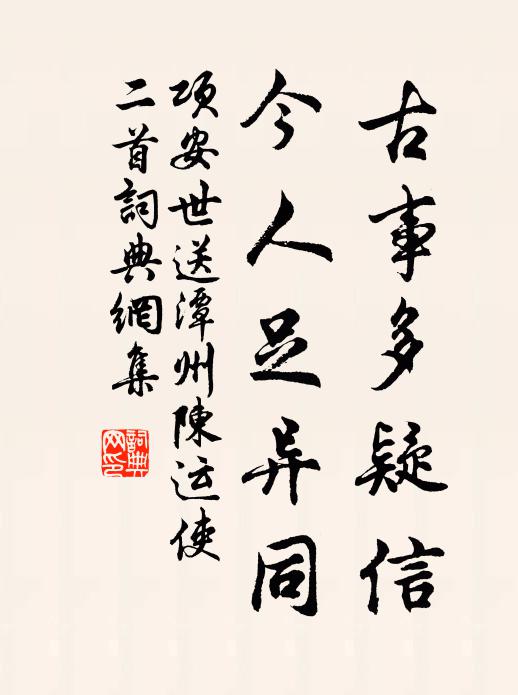 古事多疑信
今人足异同
项安世送潭州陳运使
二首詞典網集
詞典网印